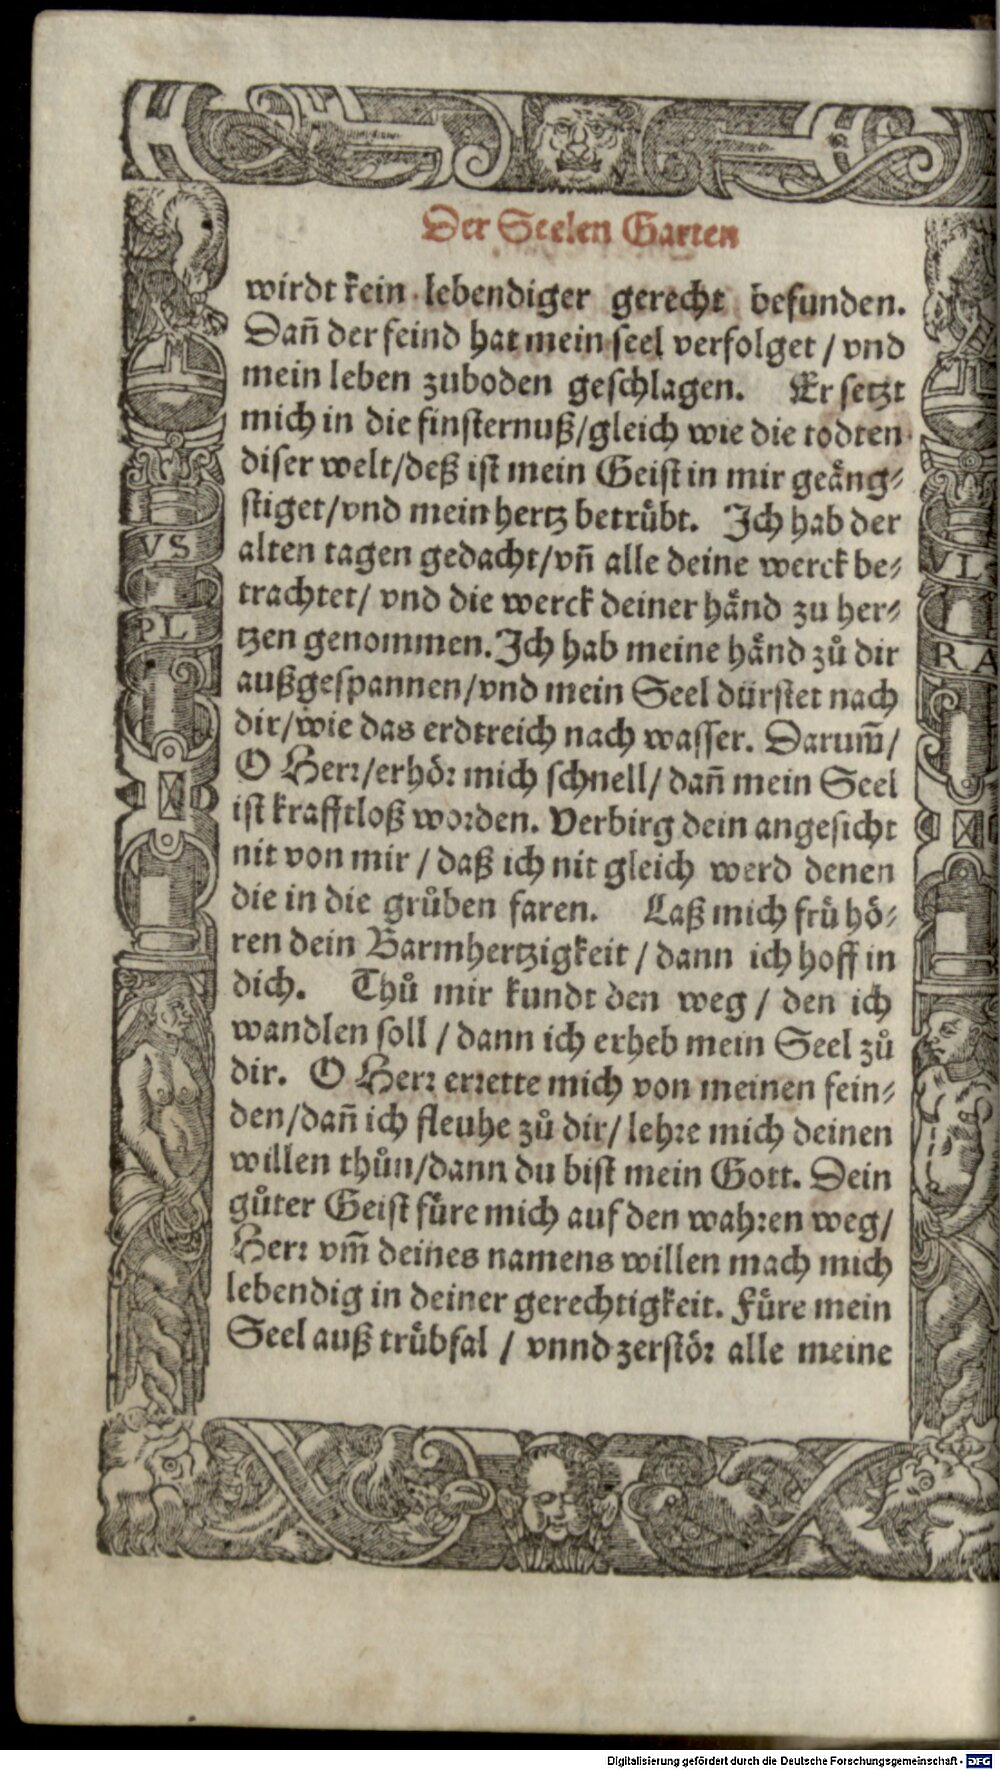 Der Seelen Garten
wirdt kein lebendiger gerecht befunden.
Dañ der feind hat mein seel verfolget / vnd
mein leben zuboden geschlagen. Er setzt
mich in die finsternuß/gleich wie die todten
diser welt/deß ist mein Geist in mir geäng⸗
stiget/vnd mein hertz betrübt. Jch hab der
alten tagen gedacht/vñ alle deine werck be⸗
trachtet/ vnd die werck deiner händ zu her⸗
tzen genommen. Jch hab meine händ zů dir
außgespannen/vnd mein Seel dürstet nach
dir/wie das erdtreich nach wasser. Darum̃/
O Herr/erhör mich schnell/ dañ mein Seel
ist krafftloß worden. Verbirg dein angesicht
nit von mir / daß ich nit gleich werd denen
die in die grůben faren. Laß mich frü hö⸗
ren dein Barmhertzigkeit / dann ich hoff in
dich. Thů mir kundt den weg / den ich
wandlen soll / dann ich erheb mein Seel zů
dir. O Herr errette mich von meinen fein⸗
den/dañ ich fleuhe zů dir/ lehre mich deinen
willen thůn/dann du bist mein Gott. Dein
gůter Geist füre mich auf den wahren weg/
Herr vm̃ deines namens willen mach mich
lebendig in deiner gerechtigkeit. Füre mein
Seel auß trübsal / vnnd zerstör alle meine
VS
PL
VL
RA
Digitalisierung gefördert durch die Deutsche Forschungsgemeinschaft - DFG